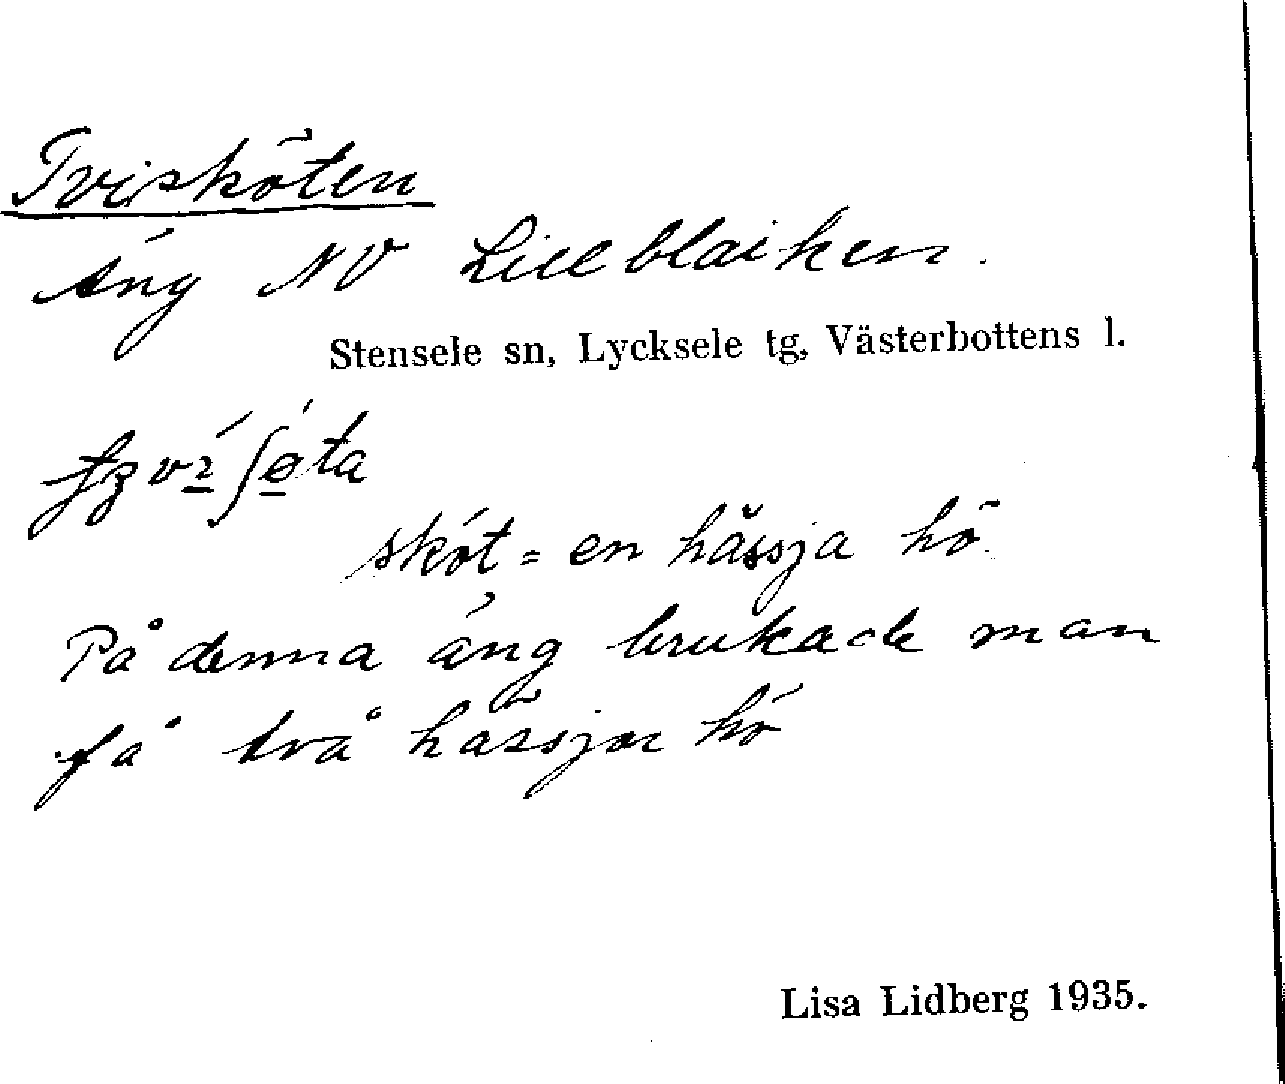 Tvisköten
Äng NV Lillblaiken.
Stensele sn, Lycksele tg, Västerbottens l.
sköt = en hässja hö.
På denna äng brukade man
få två hässjor hö
Lisa Lidberg 1935.